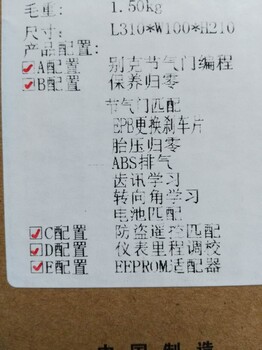 毛重: 1.50kg
尺寸: L310*W100*H210
产品配置:
A配置 别克节气门编程
B配置 保养归零
节气门匹配
EPB更换刹车片
胎压归零
ABS排气
齿讯学习
转向角学习
电池匹配
C配置 防盗遥控匹配
D配置 仪表里程调校
E配置 EEPROM适配器
中国制造